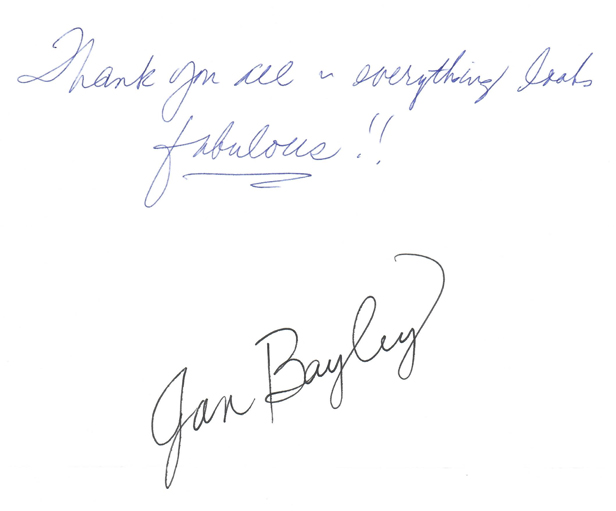 Thank you all ~ everything looks
fabulous!!
Jan Bayley